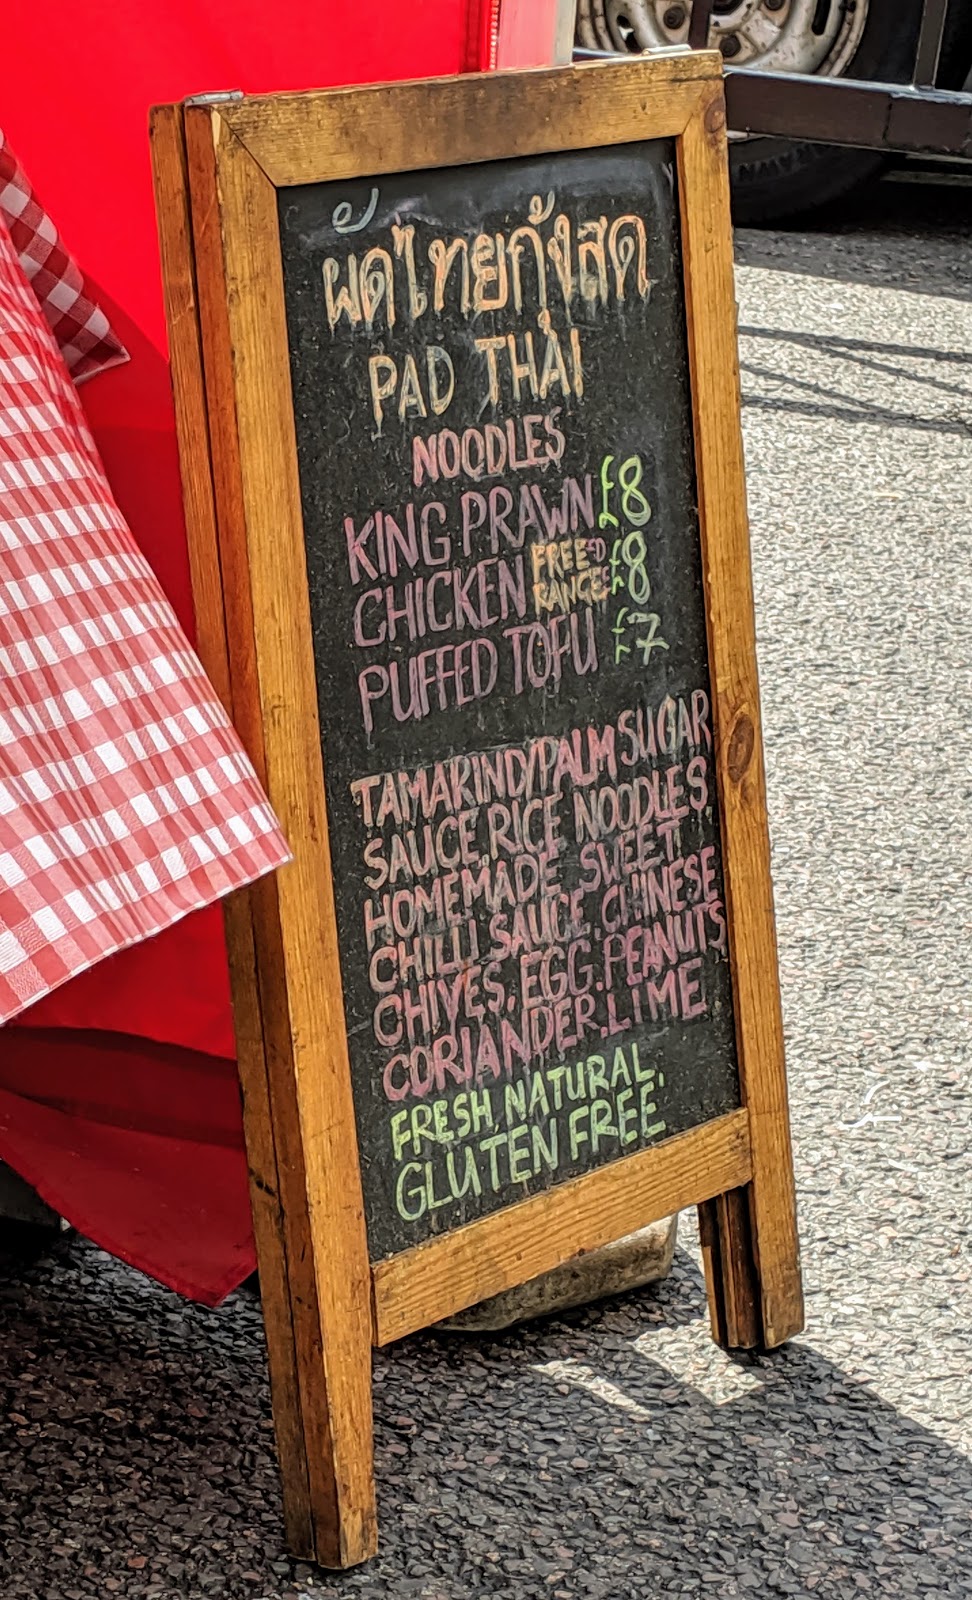 ผัดไทยกุ้งสด
PAD THAI
NOODLES
KING PRAWN £8
CHICKEN FREE RANGE £8
PUFFED TOFU £7
TAMARIND/PALM SUGAR
SAUCE, RICE NOODLES,
HOMEMADE SWEET
CHILLI SAUCE, CHINESE
CHIVES, EGG, PEANUTS
CORIANDER, LIME
FRESH, NATURAL,
GLUTEN FREE